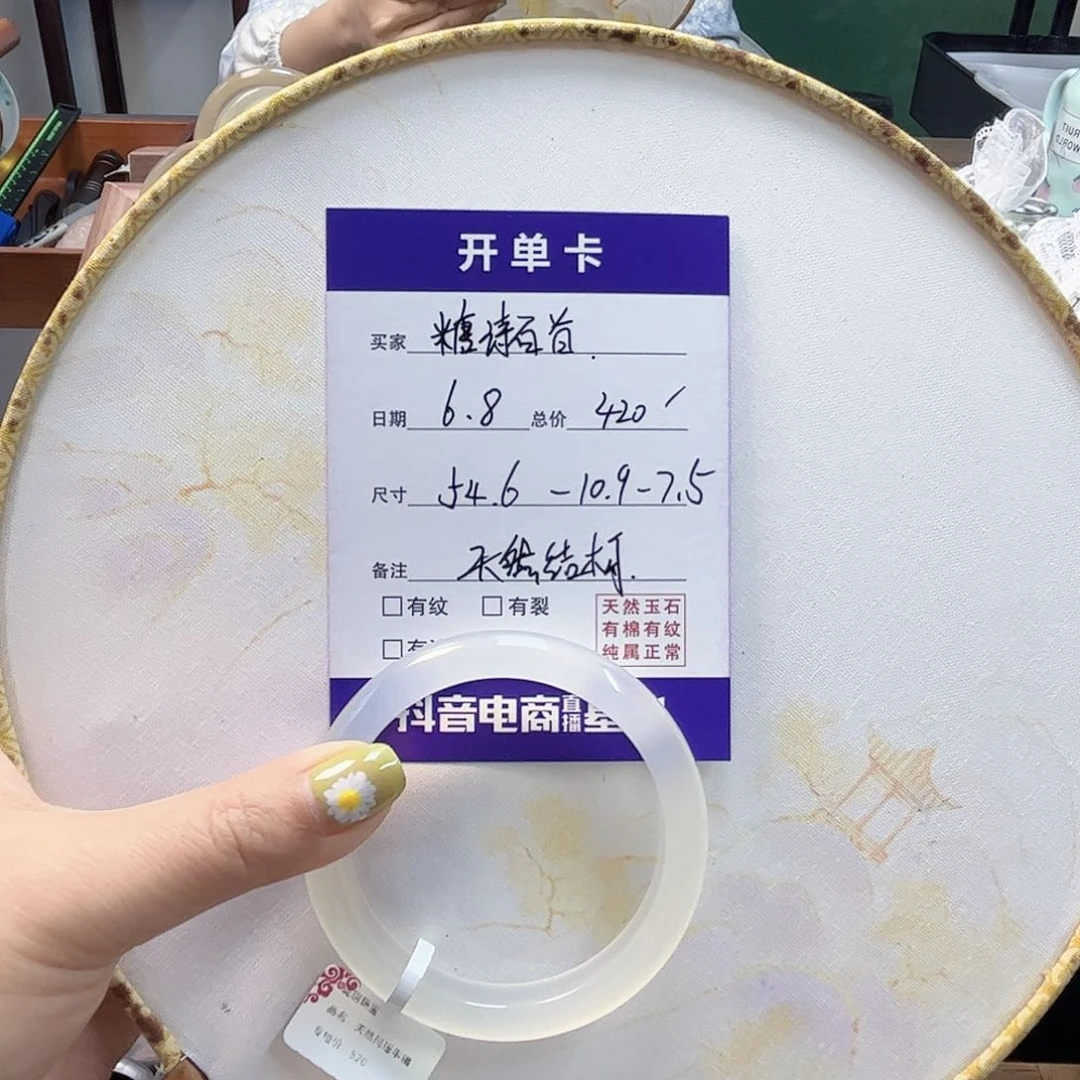 开单卡
买家 糖诗百首.
日期 6.8 总价 420
尺寸 54.6 -10.9-7.5
备注 天然结构.
□有纹 □有裂
天然玉石
有棉有纹
纯属正常
□有
抖音电商直播基
品名 天然玛瑙手镯
专柜价 520
FRUIT
WORLD